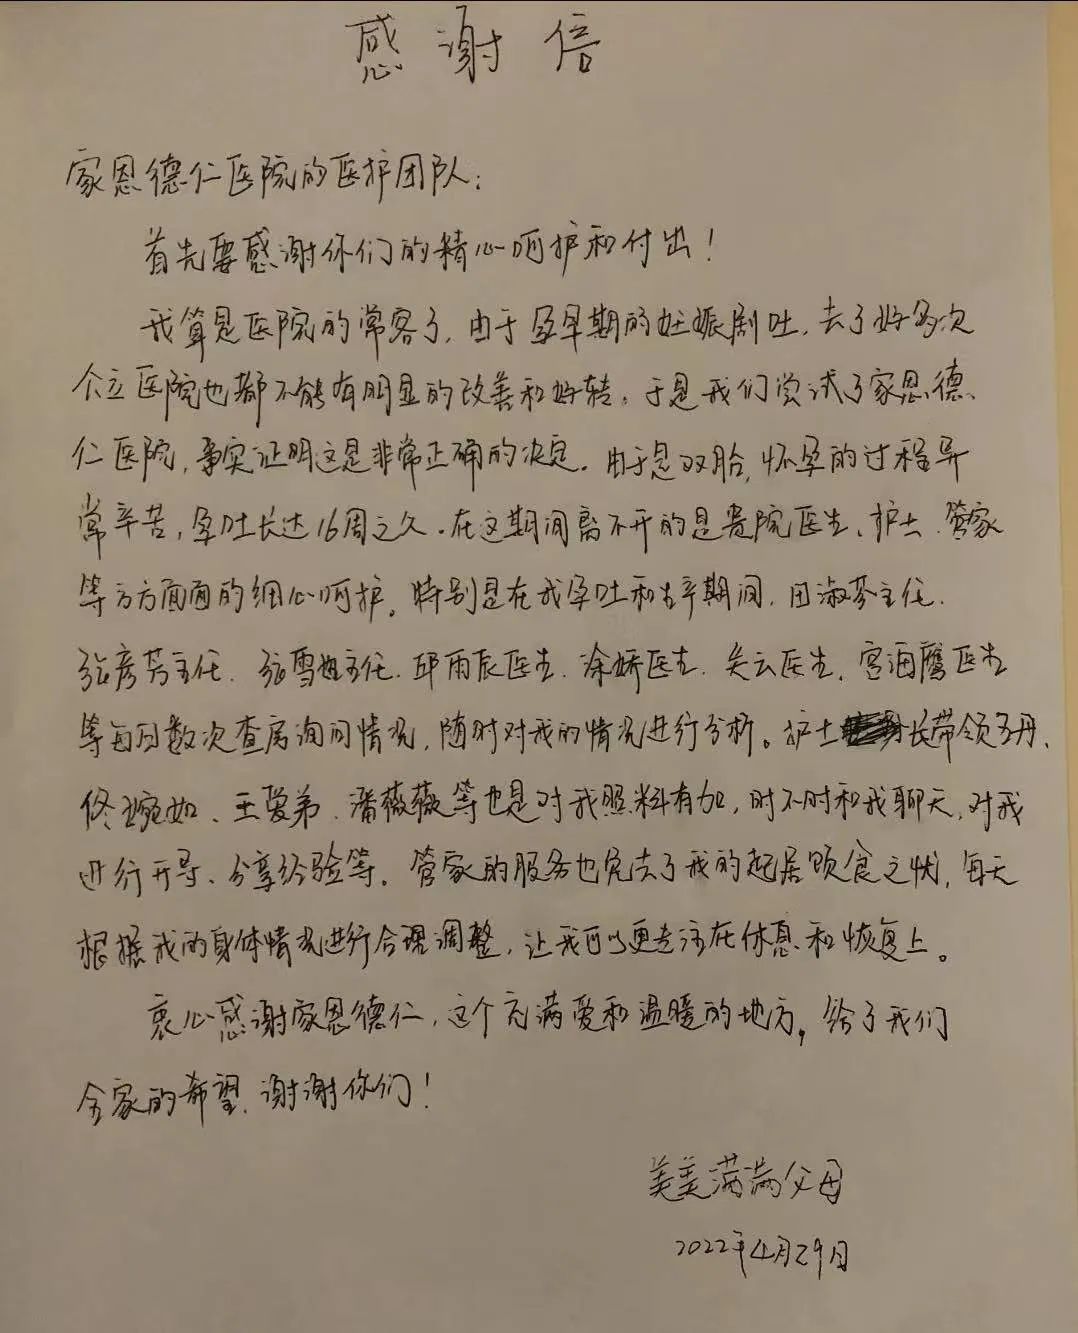 感谢信
家恩德仁医院的医护团队：
首先要感谢你们的精心呵护和付出！
我算是医院的常客了，由于孕早期的妊娠剧吐，去了好多次
公立医院也都不能有明显的改善和好转。于是我们尝试了家恩德
仁医院，事实证明这是非常正确的决定。由于是双胎，怀孕的过程异
常辛苦，孕吐长达16周之久。在这期间离不开的是贵院医生、护士、管家
等方方面面的细心呵护。特别是在我孕吐和生产期间，田淑芬主任、
张彦芳主任、张雪姐主任、邱雨辰医生、涂娇医生、关云医生、宫海鹰医生
等每日数次查房询问情况，随时对我的情况进行分析。护士长带领
佟婉如、王爱弟、潘薇薇等也是对我照料有加，时不时和我聊天，对我
进行开导、分享经验等。管家的服务也免去了我的起居饮食之忧，每天
根据我的身体情况进行合理调整，让我可以更专注在休息和恢复上。
衷心感谢家恩德仁，这个充满爱和温暖的地方，给了我们
全家的希望，谢谢你们！
美美满满父母
2022年4月29日